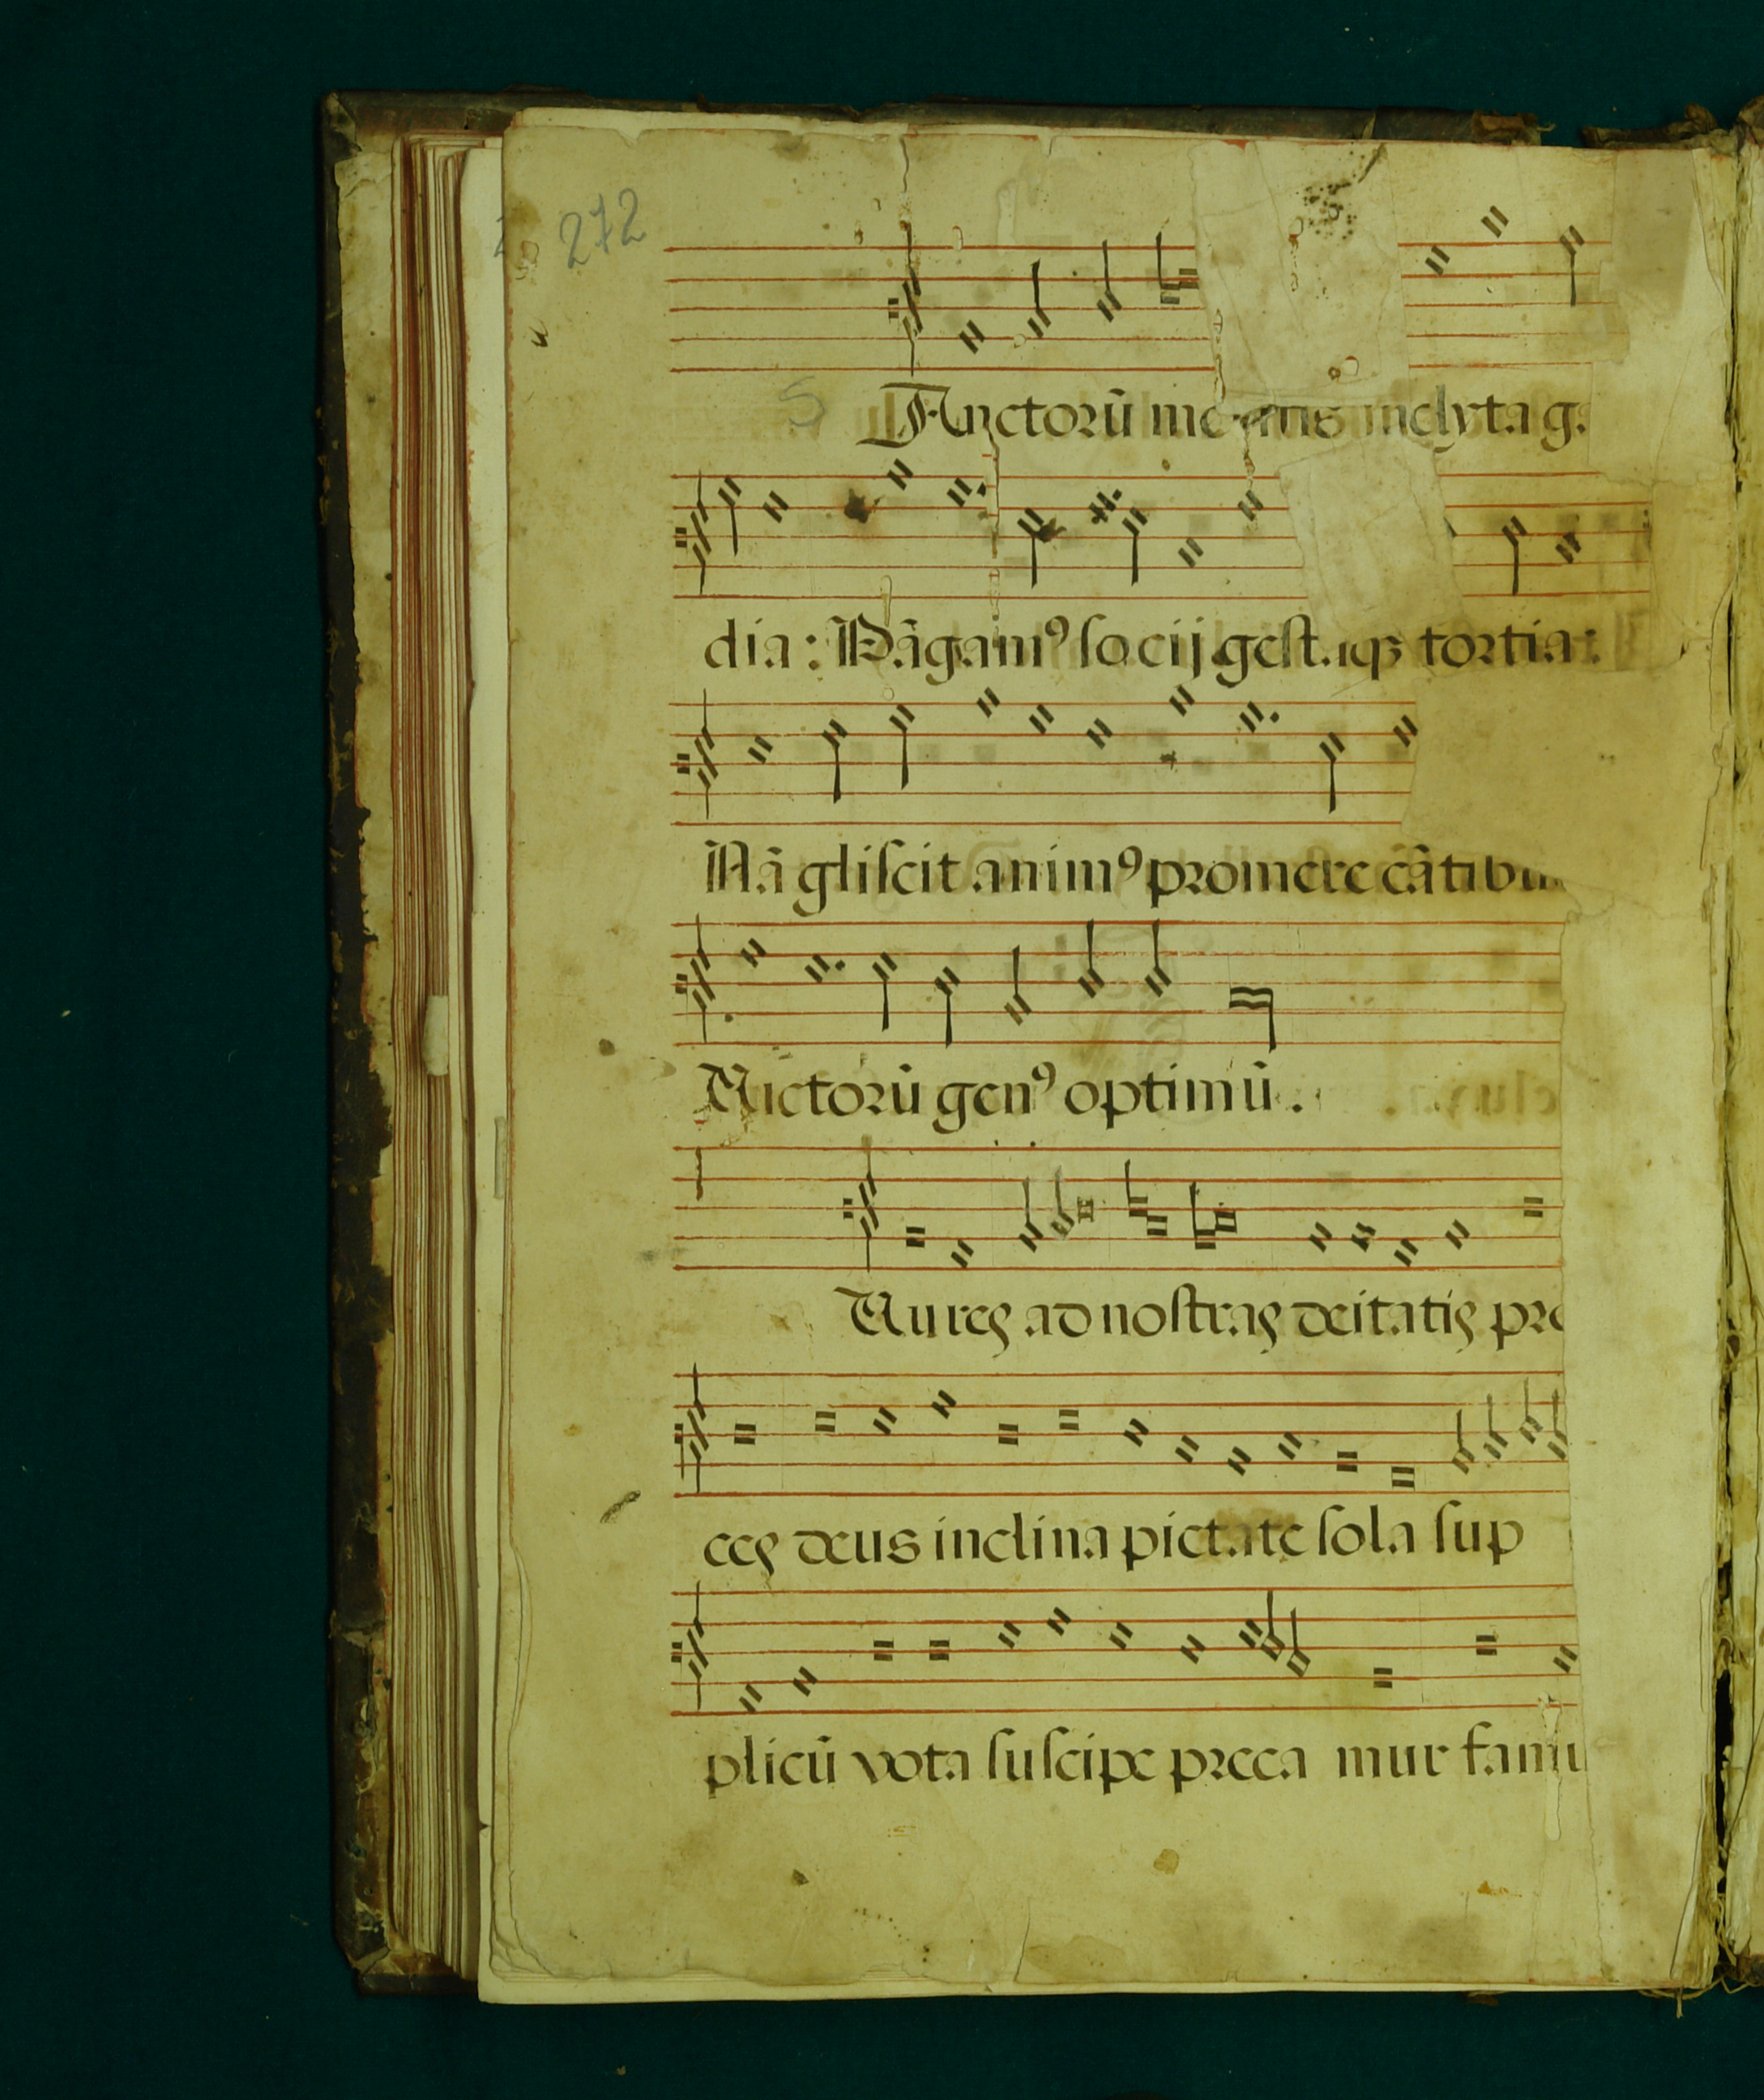 272
S
Sanctorũ meritis inclyta g.
dia: Pãgam⁹ socij gestaqꝫ fortia:
Nã gliscit anim⁹ promere cãtibu
Victorũ gen⁹ optimũ.
Aures ad nostras deitatis pre
ces deus inclina pietate sola sup
plicũ vota suscipe preca mur famu